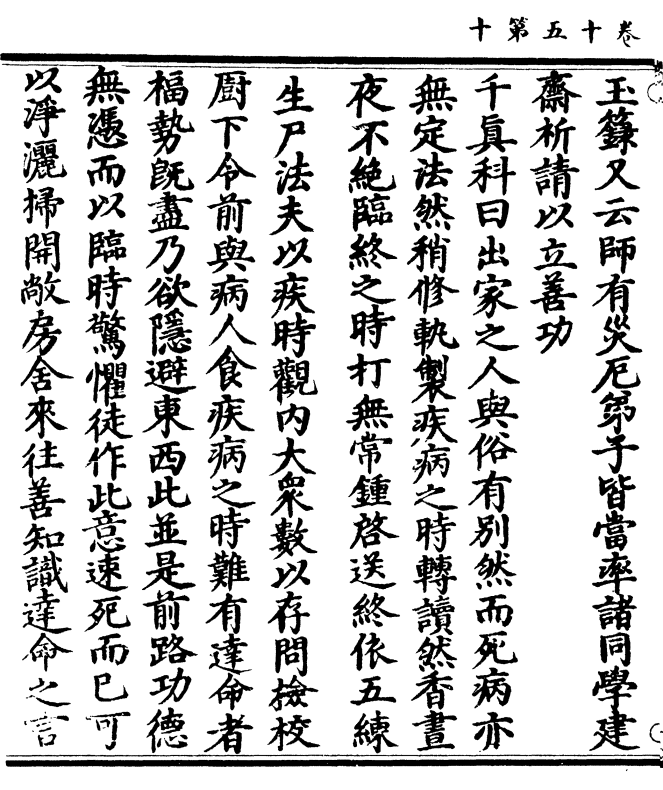 卷十五第十
玉籙又云師有災厄弟子皆當率諸同學建
齋祈請以立善功
千眞科曰出家之人與俗有別然而死病亦
無定法然稍修軌製疾病之時轉讀然香晝
夜不絶臨終之時打無常鍾啓送終依五練
生尸法夫以疾時觀內大衆數以存問撿校
厨下令前與病人食疾病之時難有達命者
福勢旣盡乃欲隱避東西此並是前路功德
無憑而以臨時驚懼徒作此意速死而已可
以淨灑掃開敞房舍來往善知識達命之言